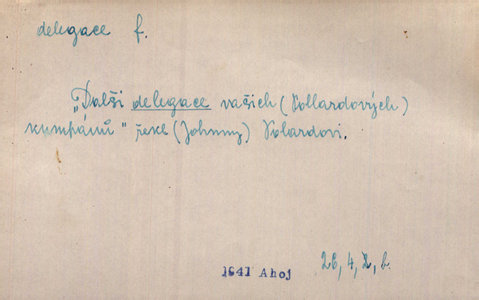 delegace f.
"Další delegace vašich (Pollardových)
kumpánů" řekl (Johnny) Polardovi.
1941 Ahoj
26, 4, 2, b.